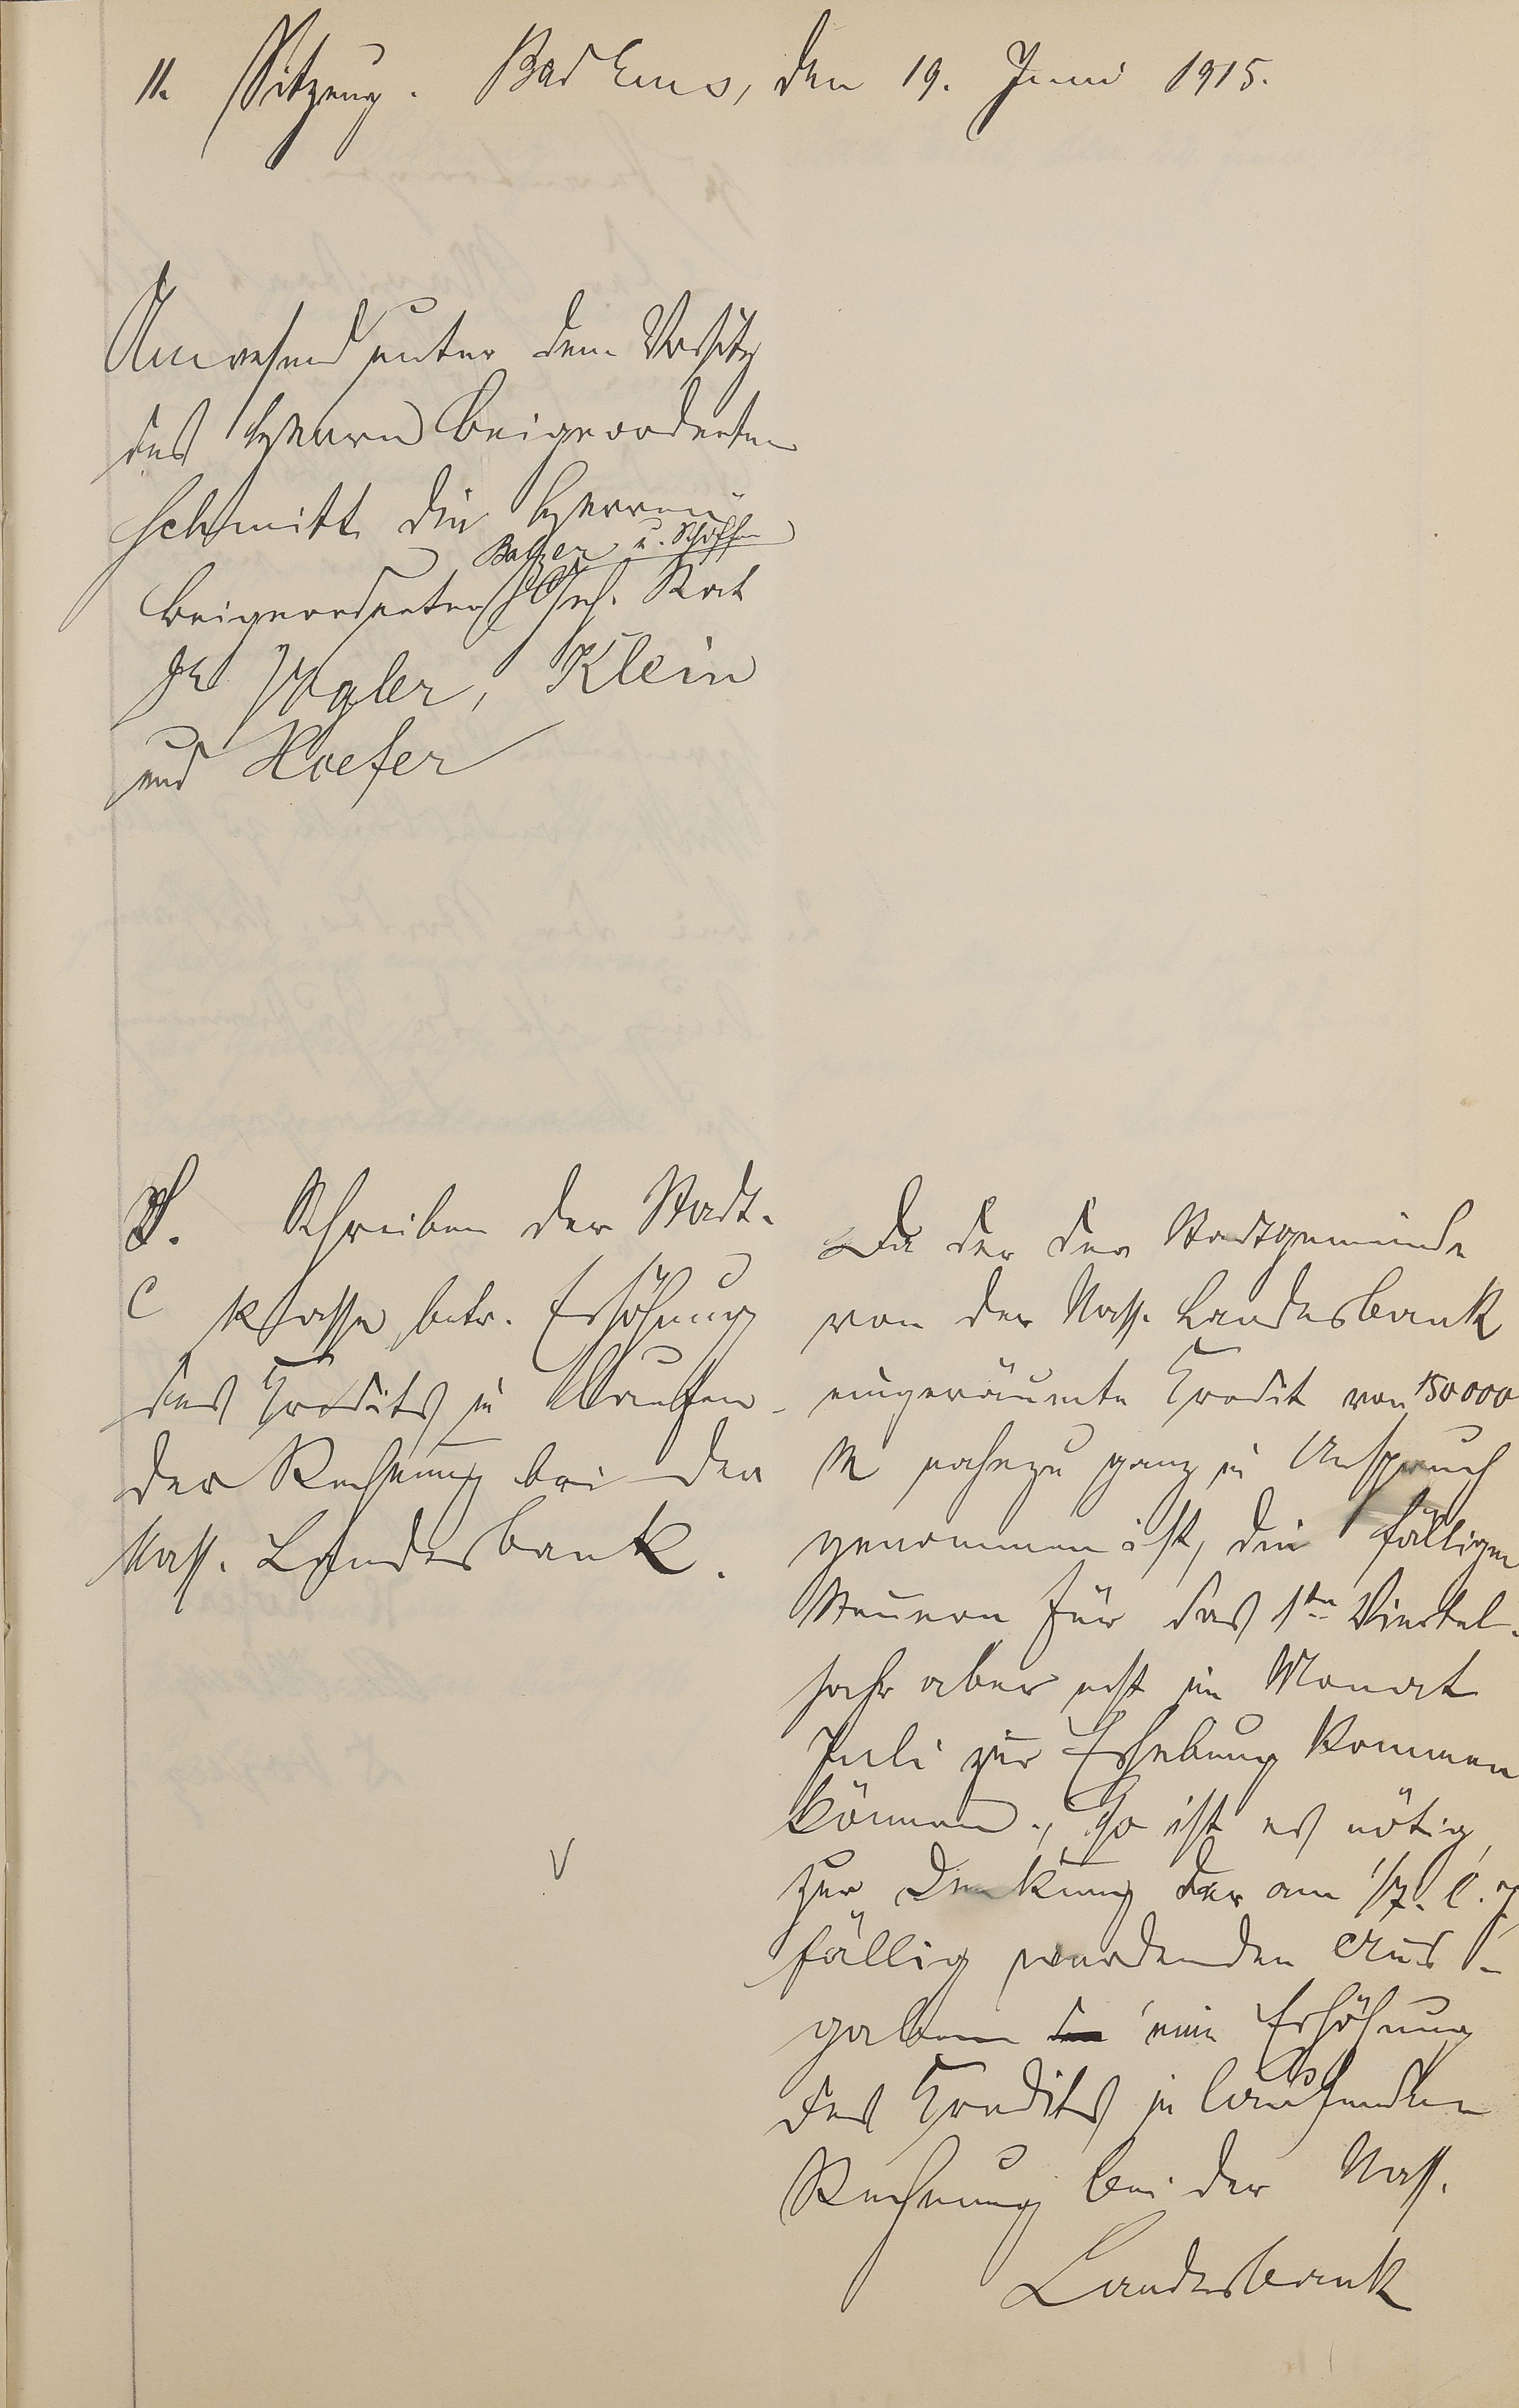 11. Sitzung. Bad Ems, den 19. Juni 1915.
Anwesend unter dem Vorsitz
des Herrn Beigeordneten
Schmitt die Herren
Balzer u. Schöffen
Beigeordneter Geh. Rat
Dr Vogler, Klein
und Hoefer
Schreiben der Stadt-
kasse betr. Erhöhung
des Kredits in laufen-
der Rechnung bei der
Nass. Landesbank.
Da der der Stadtgemeinde
von der Nass. Landesbank
eingeräumte Kredit von 150000
M nahezu ganz in Anspruch
genommen ist, die fälligen
Steuern für das 1te Viertel-
jahr aber erst im Monat
Juli zur Erhebung kommen
können, so ist es nötig,
zur Deckung der am 1/7. l. J.
fällig werdenden Aus-
gaben eine Erhöhung
des Kredits in laufenden
Rechnung bei der Nass.
Landesbank